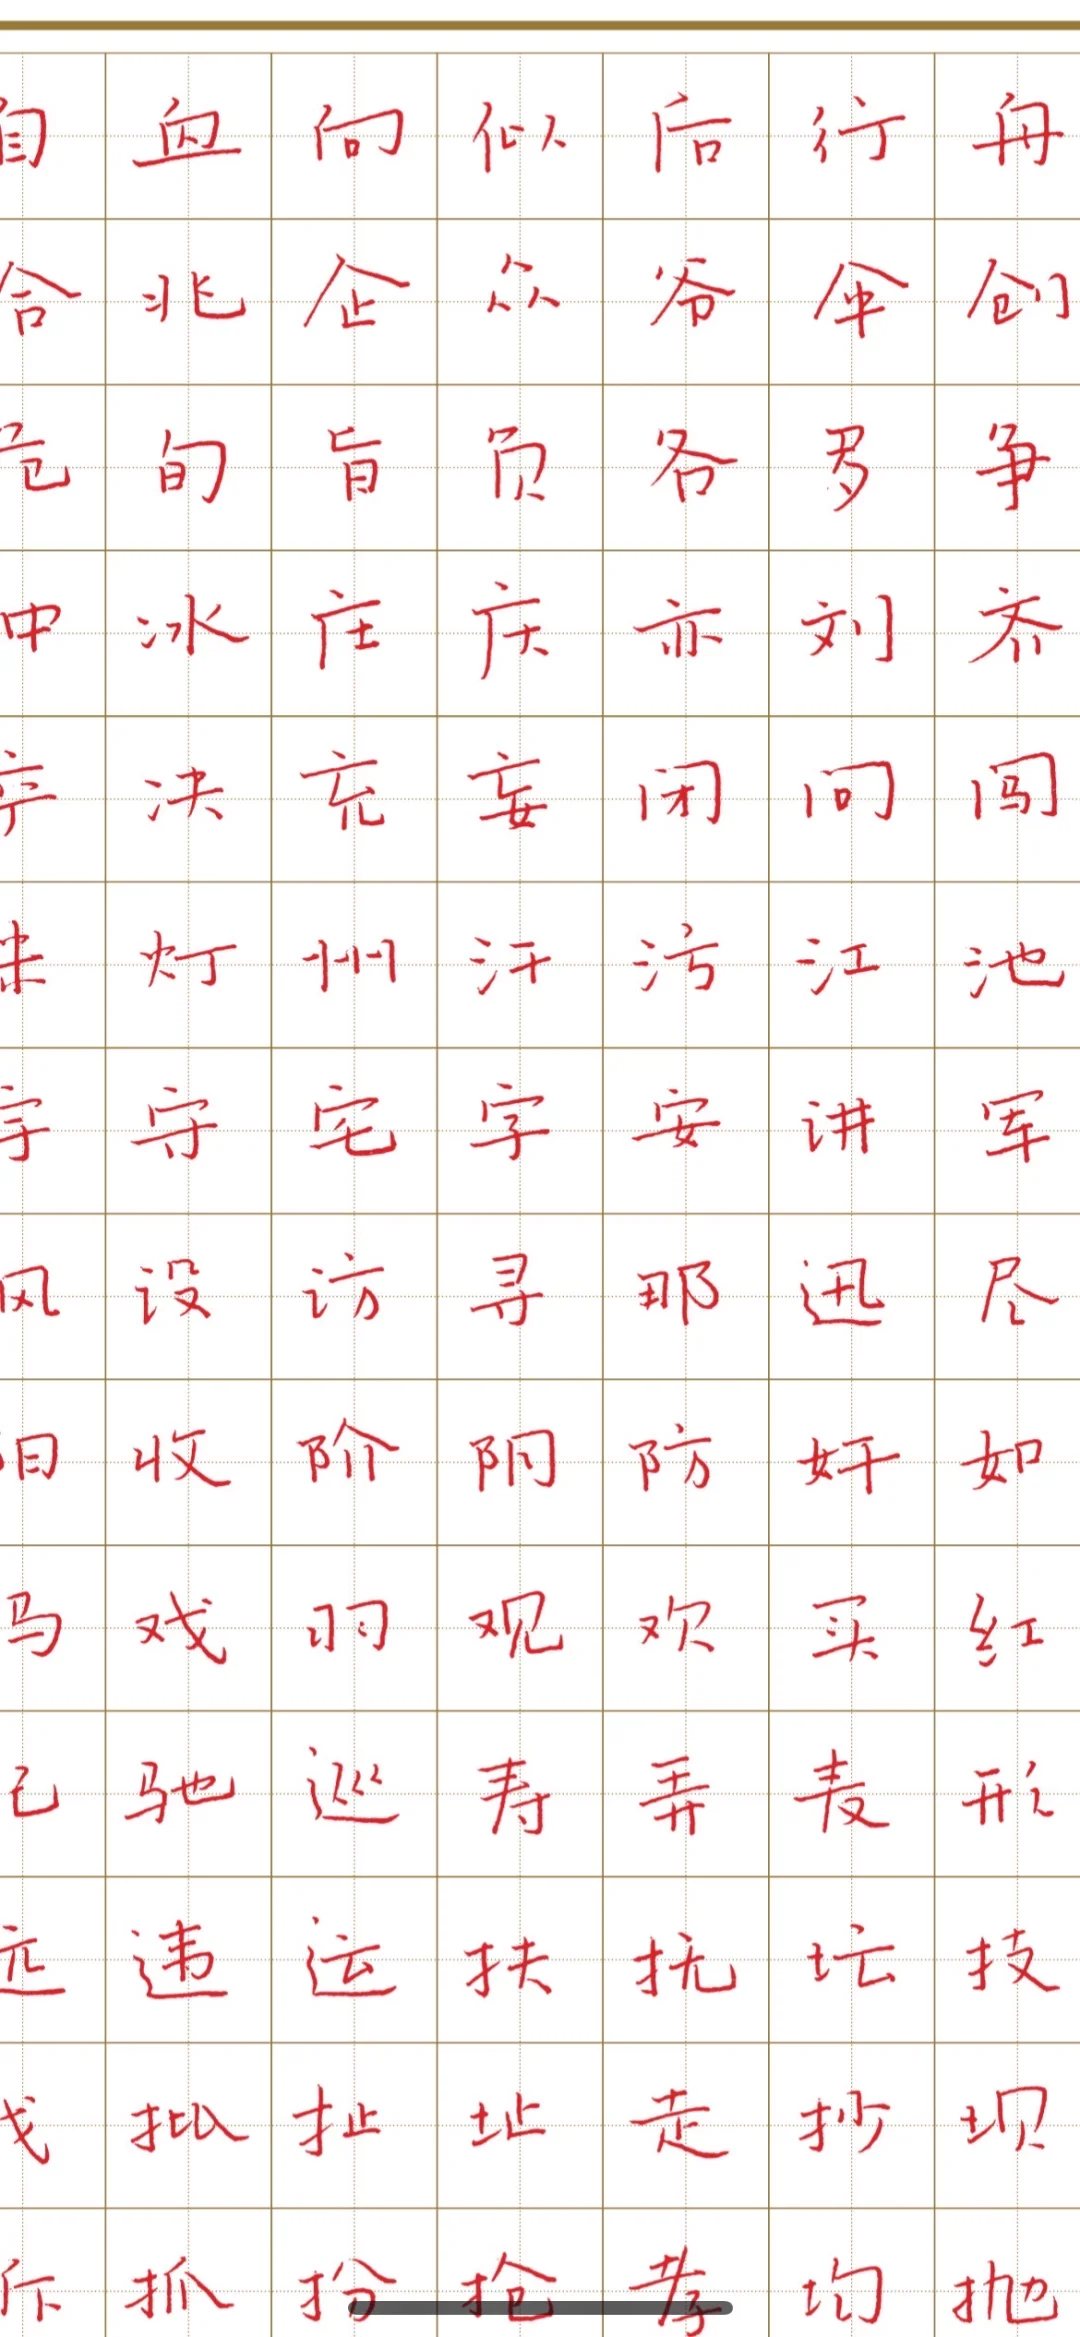 自 血 向 似 后 行 舟
合 兆 企 众 爷 伞 创
危 旬 旨 负 各 多 争
冰 庄 庆 亦 刘 齐
决 充 妄 闭 问 闯
米 灯 州 汗 污 江 池
宇 守 宅 字 安 讲 军
设 访 寻 那 迅 尽
收 阶 阴 防 奸 如
戏 羽 观 欢 买 红
驰 巡 寿 弄 麦 形
违 运 扶 抚 坛 技
批 扯 址 走 抄 坝
抓 扮 抢 孝 均 抛